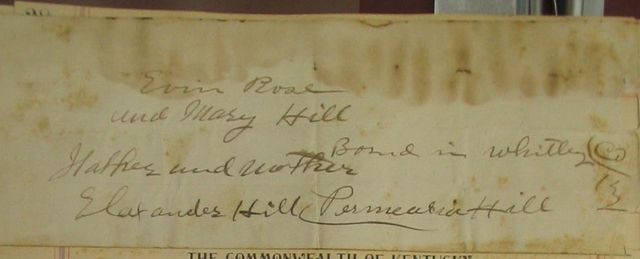 Evin Rose
and Mary Hill
Bornd in Whitley Co
Hather and Mother
Elaxander Hill Permeabia Hill
THE COMMONWEALTH OF KENTUCKY